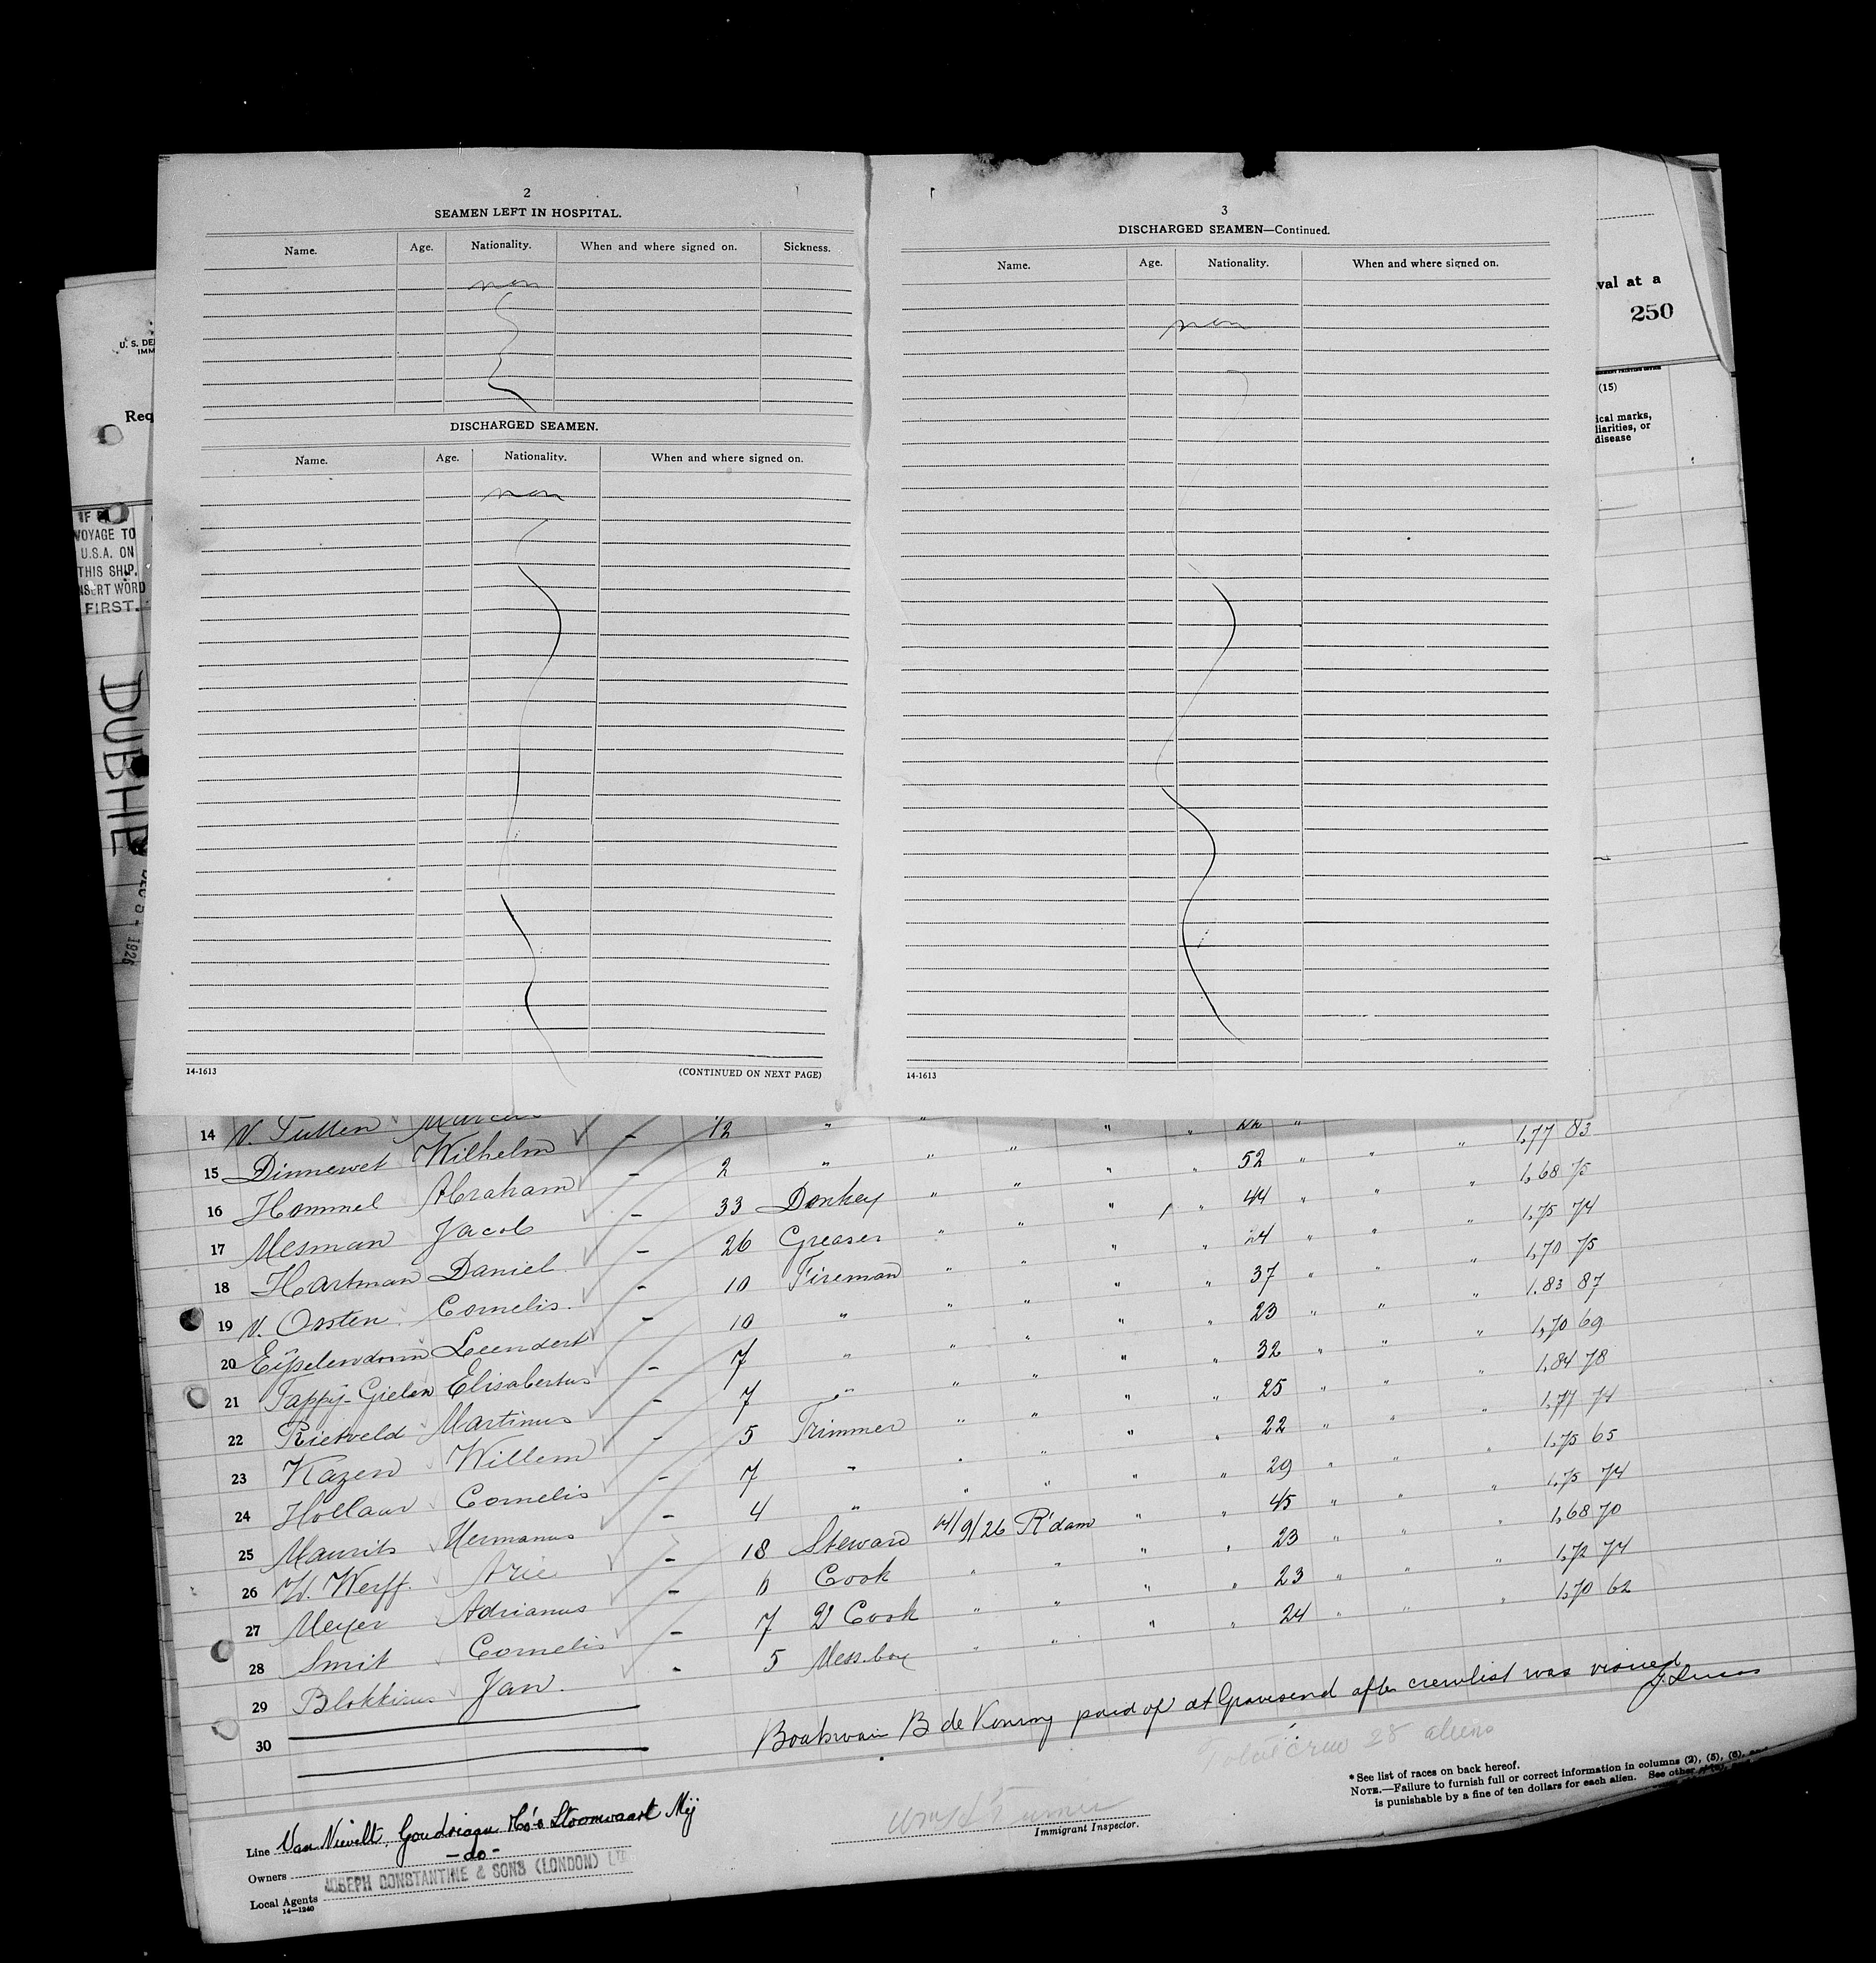 2
SEAMEN LEFT IN HOSPITAL.
Name. Age. Nationality. When and where signed on. Sickness.
non
DISCHARGED SEAMEN.
Name. Age. Nationality. When and where signed on.
non
14-1613 (CONTINUED ON NEXT PAGE)
3
DISCHARGED SEAMEN—Continued.
Name. Age. Nationality. When and where signed on.
non
14-1613
val at a
250
(15)
ical marks,
liarities, or
disease
U. S. DE
IMM
Req
IF
VOYAGE TO
U.S.A. ON
THIS SHIP,
INSERT WORD
FIRST.
DUBHE
1926
14 V. Tutten 12 " " " " 22 " 1,77 83
15 Dinnewet Wilhelm - 2 " " " " " 52 " " " 1,68 75
16 Hommel Abraham - 33 Donkey " " " " 44 " " " 1,75 74
17 Mesman Jacob - 26 Greaser " " " " 24 " " " 1,70 75
18 Hartman Daniel - 10 Fireman " " " " 37 " " " 1.83 87
19 V. Osten Cornelis - 10 " " " " " 23 " " " 1,70 69
20 Leendert - 7 " " " " " 32 " " " 1,84 78
21 Tappÿ-Gielen Elisabertus - 7 " " " " " 25 " " " 1,77 74
22 Rietveld Martinus - 5 Trimmer " " " " 22 " " " 1,75 65
23 Kazen Willem - 7 " " " " " 29 " " " 1,75 74
24 Hollaar Cornelis - 4 " " " " " 45 " " " 1,68 70
25 Maurits Hermanus - 18 Steward 14/9/26 R'dam " " 23 " " " 1,72 74
26 Werff. Arie - 6 Cook " " " " 23 " " " 1,70 62
27 Meyer Adrianus - 7 Cook " " " " 24 " "
28 Smit Cornelis - 5 Mess.boy " "
29 Jan.
30
Boatswain B de Koning paid of at Gravesend after crewlist was visied
Total crew 28 aliens
* See list of races on back hereof.
NOTE.—Failure to furnish full or correct information in columns (2), (5), (6),
is punishable by a fine of ten dollars for each alien. See other
Immigrant Inspector.
Line Van Nievelt, Goudriaan & Co's Stoomvaart Mij
Owners -do-
Local Agents JOSEPH CONSTANTINE & SONS (LONDON) LTD
14-1240